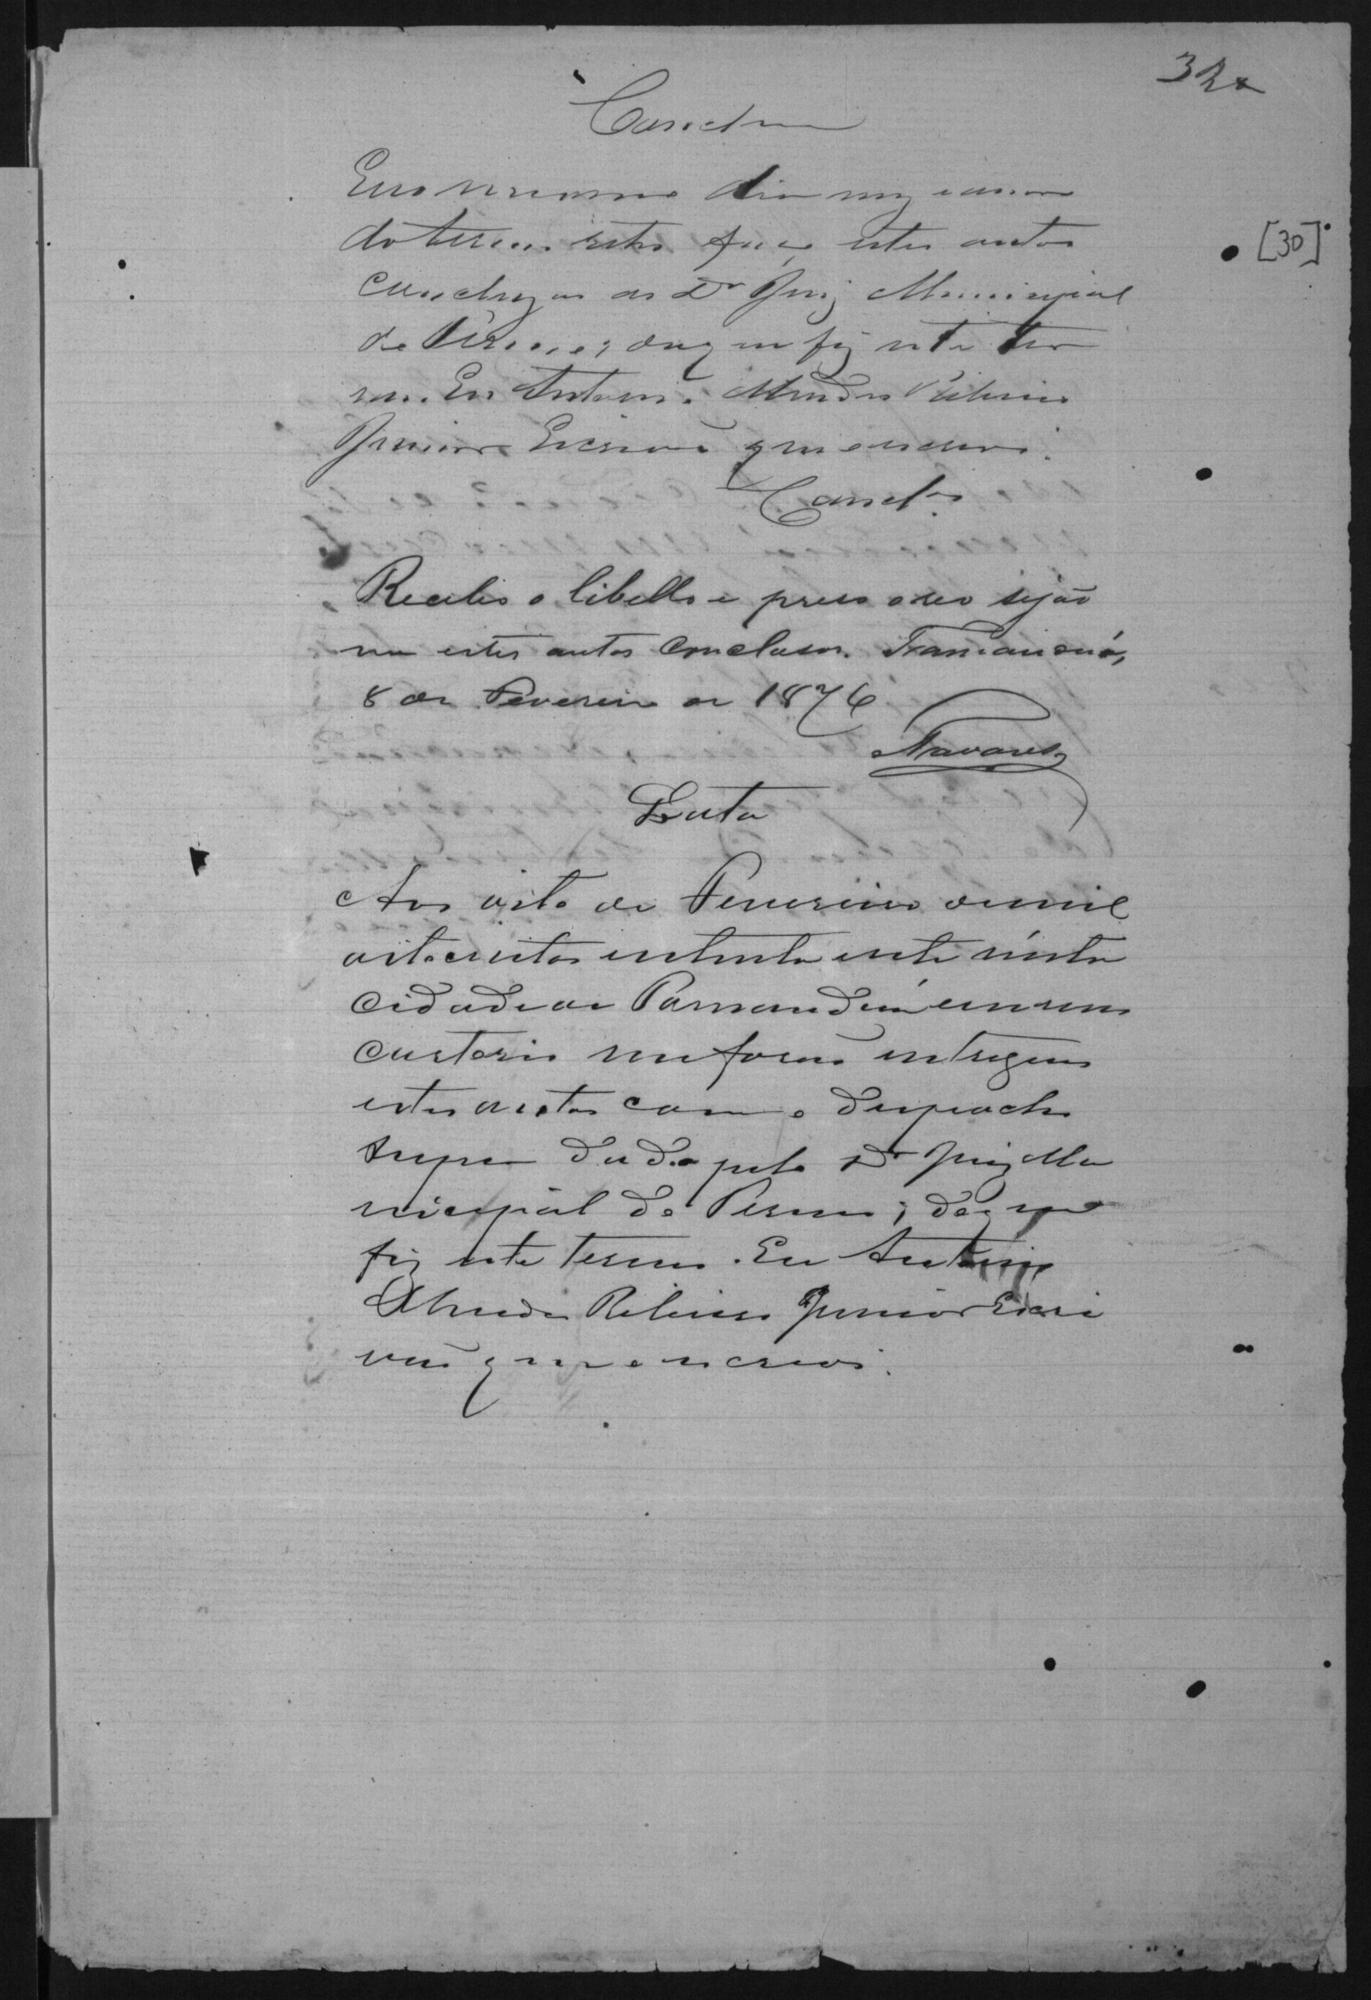 32
Conclusão
E no mesmo dia mez e anno
do termo retro faço estes autos
conclusos ao Dr Juiz Municipal
do Termo; do que fiz este ter
mo. Eu Antonio Mendes Ribeiro
Junior Escrivão que escrevi.
Conclos
[30]
Recebo o libello e preso o reo sejão
me estes autos conclusos.
8 de Fevereiro de 1876
Navarro
Data
Aos oito de Fevereiro de mil
oitocentos setenta e seis nesta
cidade de em meu
cartorio me forão entregues
estes autos com o despacho
supra dado pelo Dr Juiz Mu
nicipal do Termo; do que
fiz este termo. Eu Antonio
Mendes Ribeiro Junior Escri
vão que escrevi.